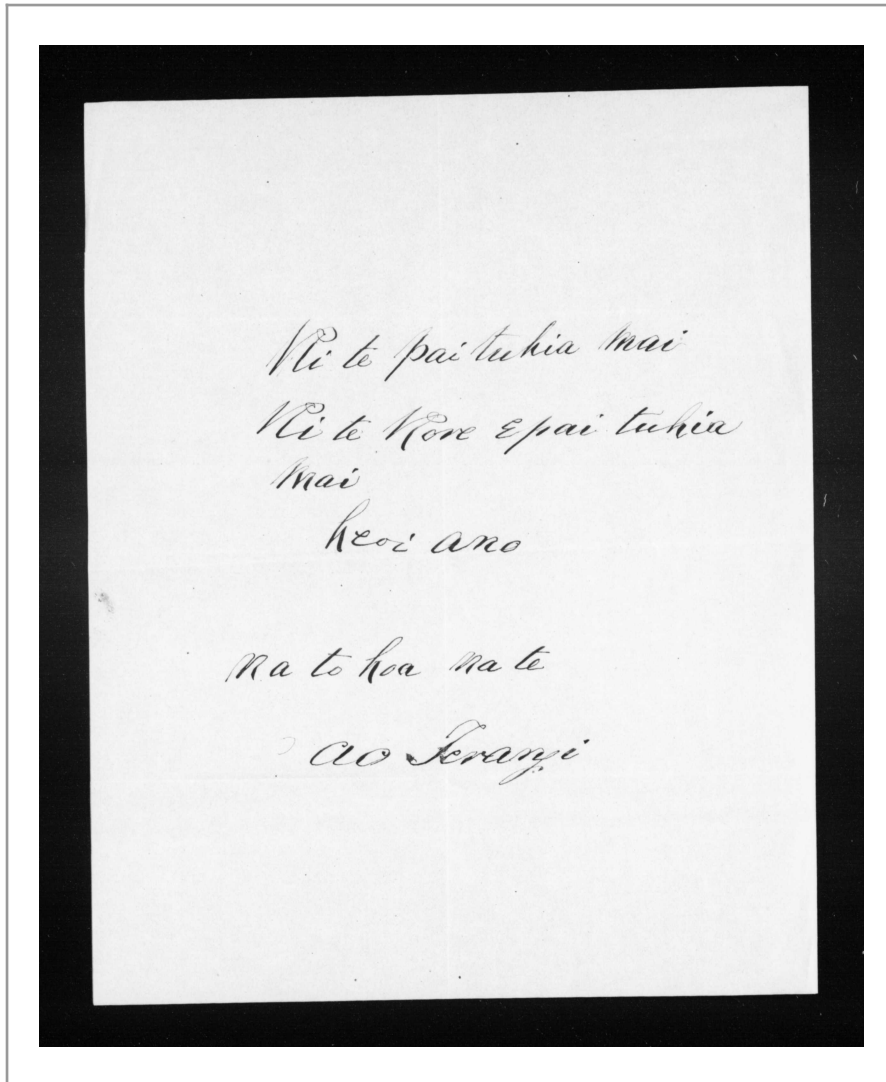 Ki te pai tuhia mai
Ki te Kore e pai tuhia
mai
heoi ano
na to hoa na te
ao Terangi